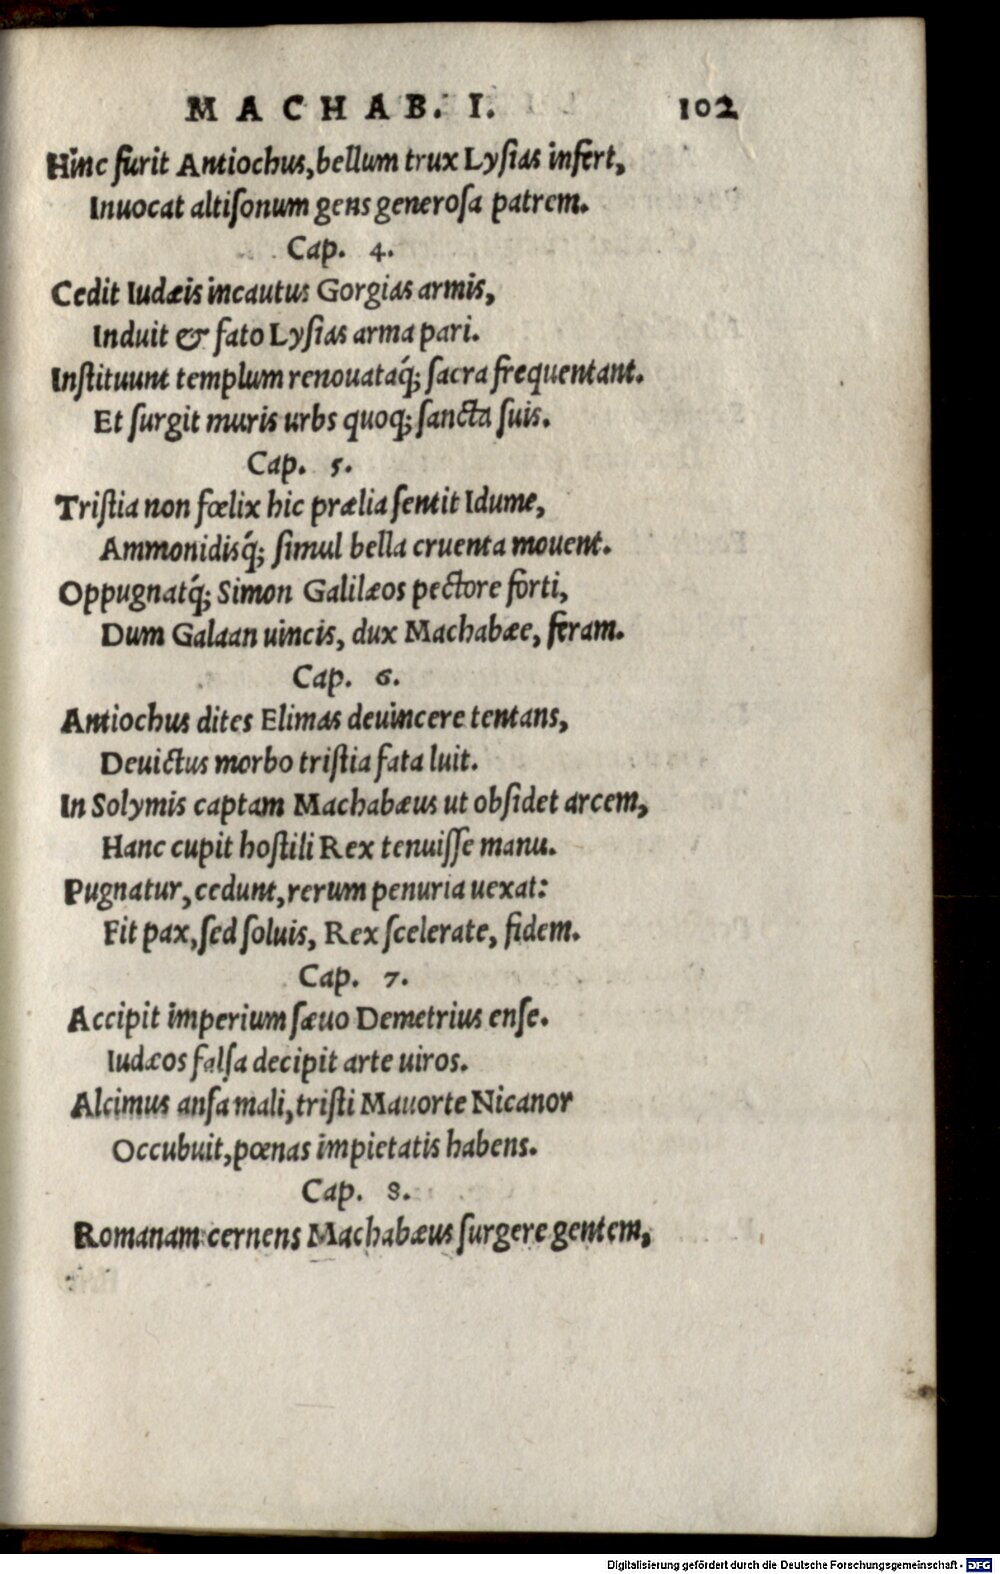 MACHAB. I. 102
Hinc furit Antiochus, bellum trux Lyſias infert,
Inuocat altiſonum gens generoſa patrem.
Cap. 4.
Cedit Iudæis incautus Gorgias armis,
Induit & fato Lyſias arma pari.
Inſtituunt templum renouataq́; ſacra frequentant.
Et ſurgit muris urbs quoq; ſancta ſuis.
Cap. 5.
Triſtia non fœlix hic prælia ſentit Idume,
Ammonidisq́; ſimul bella cruenta mouent.
Oppugnatq́; Simon Galilæos pectore forti,
Dum Galaan uincis, dux Machabæe, feram.
Cap. 6.
Antiochus dites Elimas deuincere tentans,
Deuictus morbo triſtia fata luit.
In Solymis captam Machabæus ut obſidet arcem,
Hanc cupit hoſtili Rex tenuiſſe manu.
Pugnatur, cedunt, rerum penuria uexat:
Fit pax, ſed ſoluis, Rex ſcelerate, fidem.
Cap. 7.
Accipit imperium ſæuo Demetrius enſe.
Iudæos falſa decipit arte uiros.
Alcimus anſa mali, triſti Mauorte Nicanor
Occubuit, pœnas impietatis habens.
Cap. 8.
Romanam cernens Machabæus ſurgere gentem,
Digitalisierung gefördert durch die Deutsche Forschungsgemeinschaft - DFG